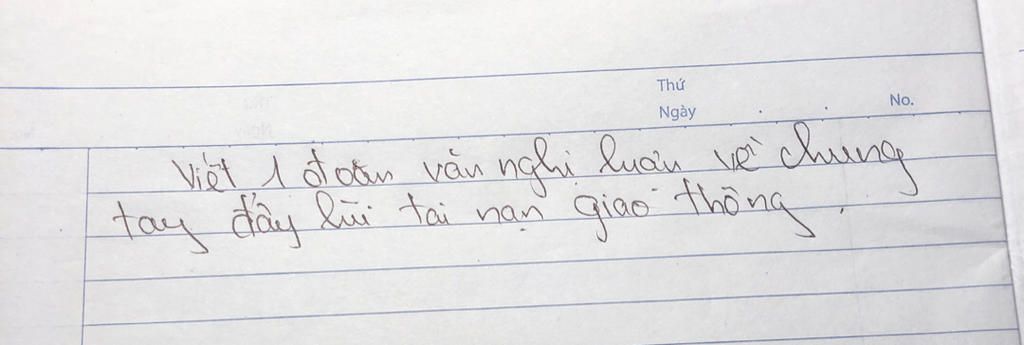 Thứ
Ngày . . No.
Viết 1 đoạn văn nghị luận về chung
tay đẩy lùi tai nạn giao thông.